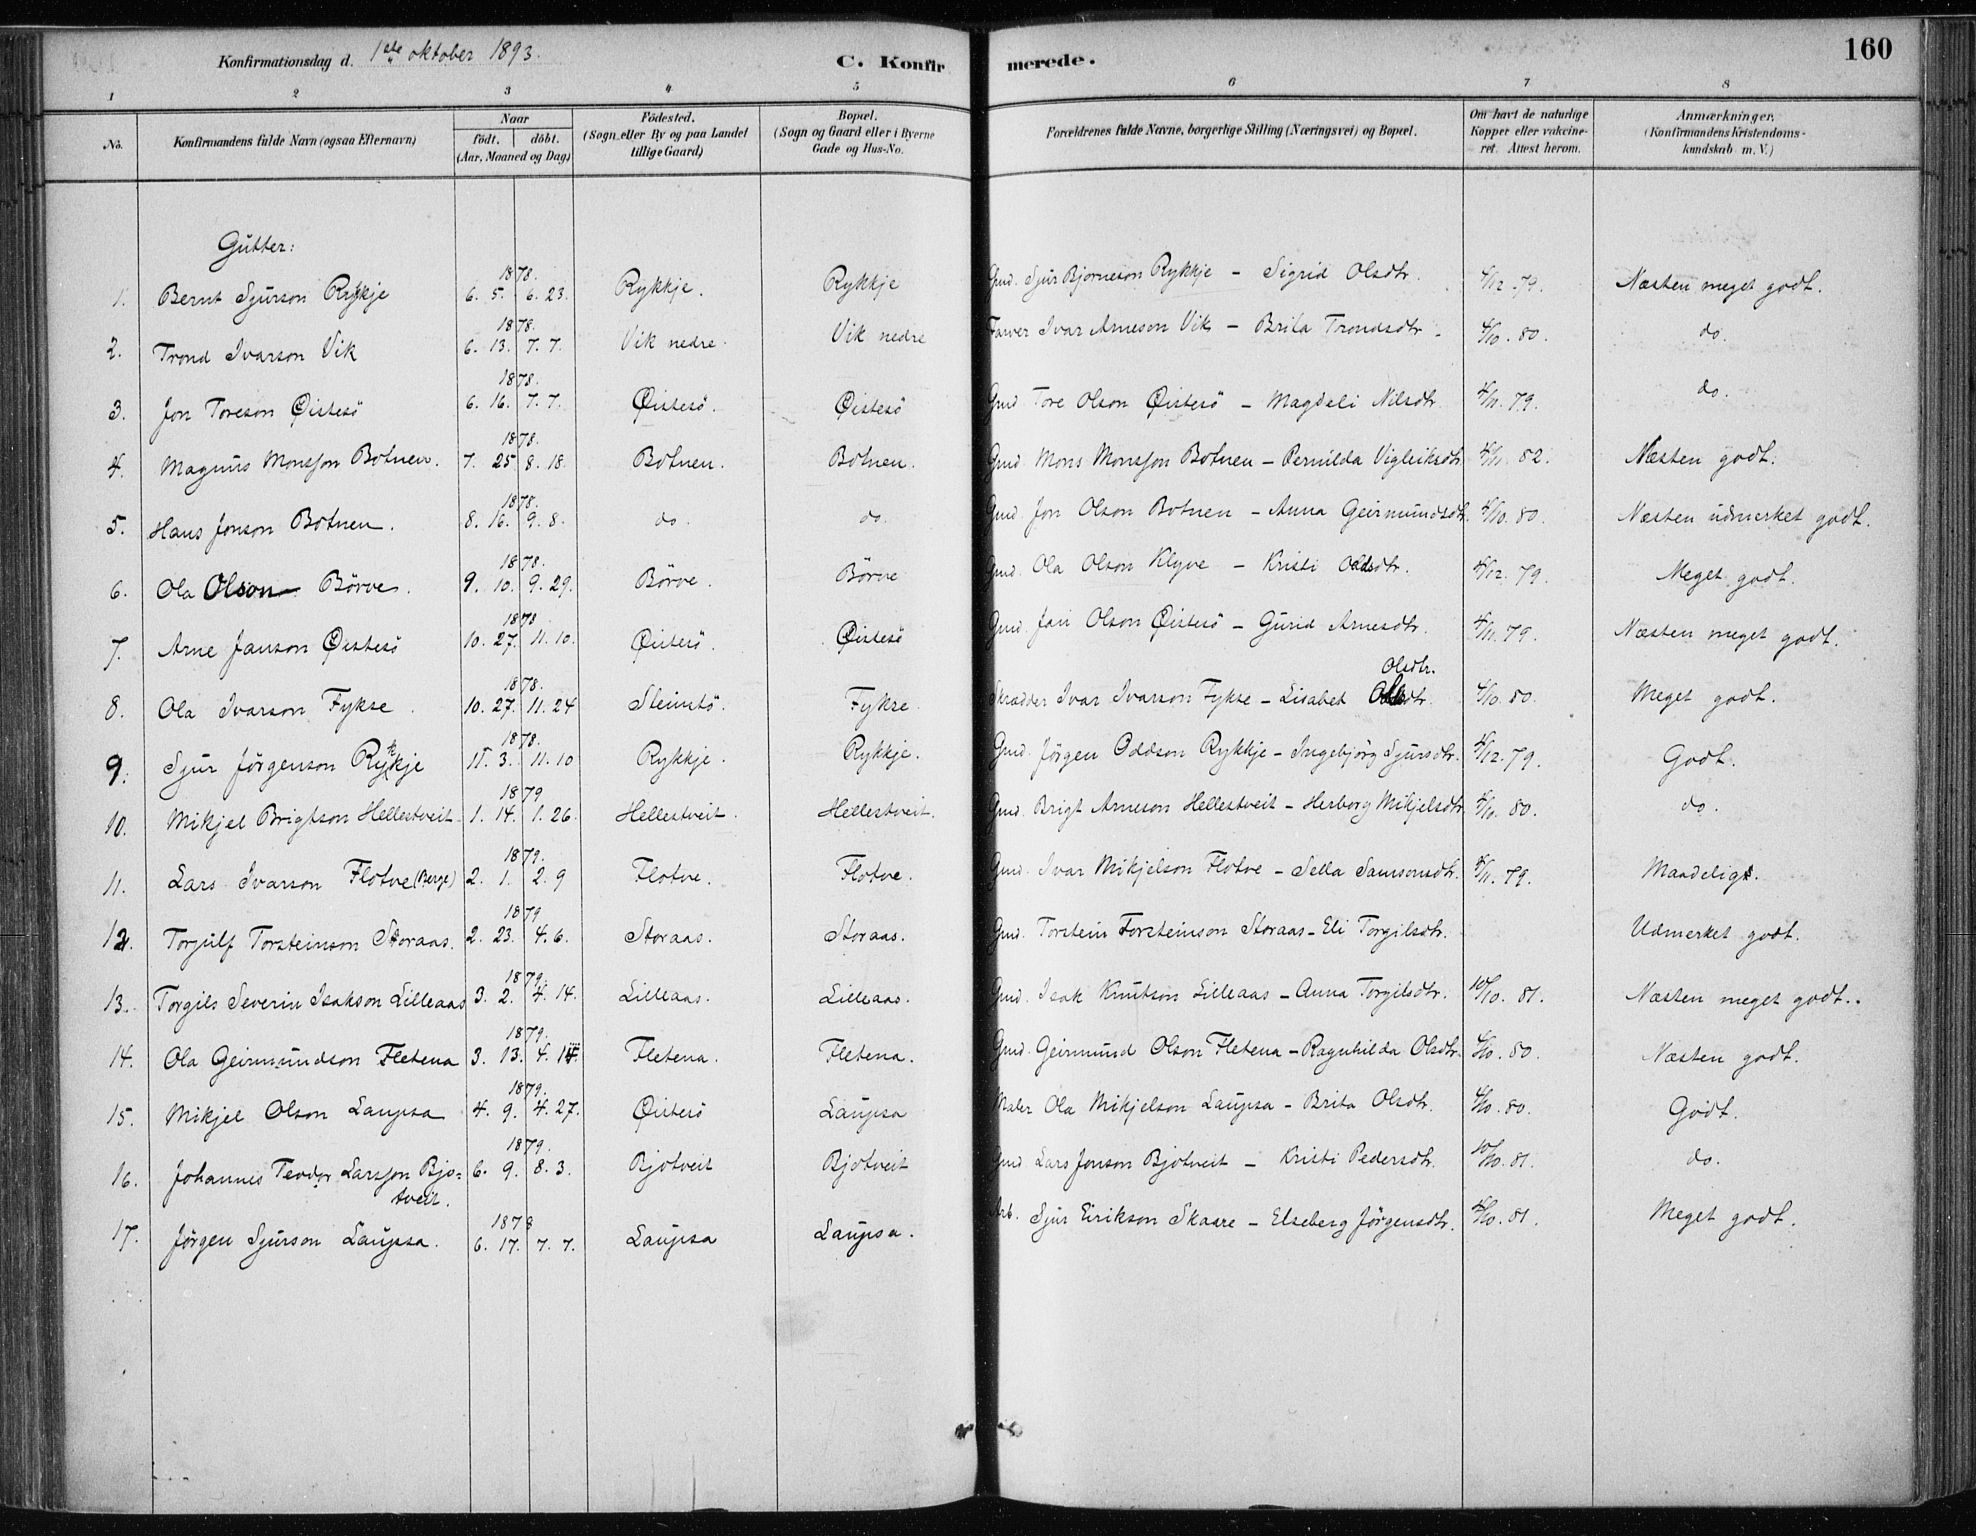 160
Konfirmationsdag d. 1ste oktober 1893.
C. Konfirmerede.
1 2 3 4 5 6 7 8
No. Konfirmandens fulde Navn (ogsaa Efternavn) Naar født, døbt. (Aar, Maaned og Dag) Födested. (Sogn eller By og paa Landet tillige Gaard) Bopæl. (Sogn og Gaard eller i Byerne Gade og Hus-No. Forældrenes fulde Navne, borgerlige Stilling (Næringsvei) og Bopæl. Om havt de naturlige Kopper eller vakcineret. Attest herom. Anmærkninger. (Konfirmandens Kristendomskundskab m. V.)
Gutter:
1. Bernt Sjurson Rykkje 1878. 6. 5. 6. 23. Rykkje. Rykkje Gmd. Sjur Bjorneson Rykkje - Sigrid Olsdtr. 4/12. 79. Næsten meget godt.
2. Trond Ivarson Vik 1878. 6. 13. 7. 7. Vik nedre. Vik nedre Farver Ivar Arneson Vik - Brita Trondsdtr. 4/10. 80. do.
3. Jon Toreson Øistesö 1878. 6. 16. 7. 7. Øistesö. Øistesö Gmd. Tore Olson Øistesö - Magdeli Nilsdtr. 4/11. 79. do.
4. Magnus Monsson Botnen. 1878. 7. 25 8. 18. Botnen. Botnen. Gmd. Mons Monsson Botnen - Pernilda Vigleiksdtr. 4/11. 82. Næsten godt.
5. Hans Jonson Botnen. 1878. 8. 16. 9. 8. do. do. Gmd. Jon Olson Botnen - Anna Geirmundsdtr. 4/10. 80. Næsten udmerket godt.
6. Ola Olson Börve. 1878. 9. 10. 9. 29. Börve. Börve Gmd. Ola Olson Klyve - Kristi Oddsdtr. 4/12. 79. Meget godt.
7. Arne Janson Øistesö 1878 10. 27. 11. 10. Øistesö. Øistesö Gmd. Jan Olson Øistesö - Gurid Arnesdtr. 4/11. 79. Næsten meget godt.
8. Ola Ivarson Fykse. 1878. 10. 27. 11. 24 Steinstö. Fykse. Skrædder Ivar Ivarson Fykse - Lisabet Olsdtr. 4/10. 80. Meget godt.
9. Sjur Jörgenson Rykkje 1878. 11. 3. 11. 10 Rykkje. Rykkje. Gmd. Jörgen Oddson Rykkje - Ingebjörg Sjursdtr. 4/12. 79. Godt.
10. Mikjel Brigtson Hellestveit. 1879 1. 14. 1. 26. Hellestveit. Hellestveit. Gmd. Brigt Arneson Hellestveit - Herborg Mikjelsdtr. 4/10. 80. do.
11. Lars Ivarson Flotve (Berge) 1879. 2. 1. 2. 9 Flotve. Flotve. Gmd. Ivar Mikjelson Flotve - Sella Samsonsdtr. 4/11. 79. Maadeligt.
12. Torjulf Torsteinson Storaas. 1879 2. 23. 4. 6. Storaas. Storaas. Gmd. Torstein Torsteinson Storaas - Eli Torgilsdtr. Udmerket godt.
13. Torgils Severin Isakson Lilleaas 1879. 3. 2. 4. 14. Lilleaas. Lilleaas. Gmd. Isak Knutson Lilleaas - Anna Torgilsdtr. 10/10. 81. Næsten meget godt.
14. Ola Geirmundson Fletena 1879. 3. 13. 4. 14. Fletena. Fletena. Gmd. Geirmund Olson Fletena - Ragnhilda Olsdtr. 4/10. 80. Næsten godt.
15. Mikjel Olson Laupsa 1879. 4. 9. 4. 27. Øistesö Laupsa Maler Ola Mikjelson Laupsa - Brita Olsdtr. 4/10. 80. Godt.
16. Johannes Teodor Larsson Bjotveit. 1879. 6. 9. 8. 3. Bjotveit Bjotveit Gmd. Lars Jonson Bjotveit - Kristi Pedersdtr. 10/10. 81. do.
17. Jörgen Sjurson Laupsa. 1878 6. 17. 7. 7. Laupsa Laupsa. Arb. Sjur Eirikson Skaare - Elseberg Jörgensdtr. 4/10. 81. Meget godt.